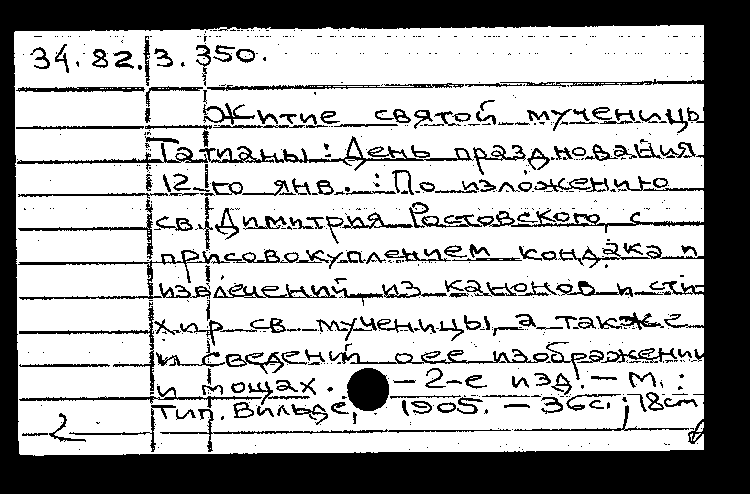 34.82. 3.350.
Житие святой мученицы
Татианы: День празднования
12-го янв.: По изложению
св. Димитрия Ростовского, с
присовокуплением кондака и
извлечений из канонов и сти-
хир св мученицы, а также
и сведений о ее изображении
и мощах. — 2-е изд. — М.:
Тип. Вильде, 1905. — 36с.; 18см
2